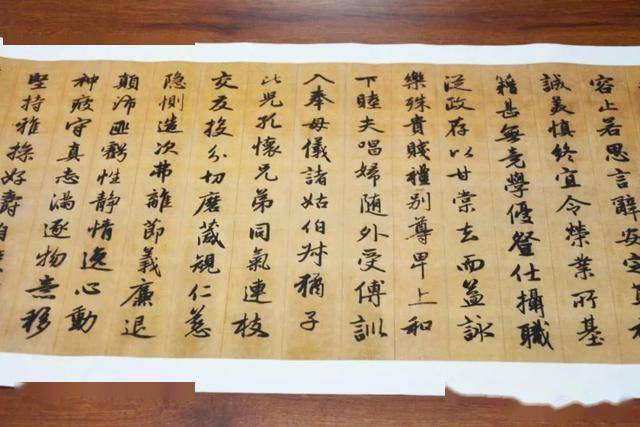 容止若思言辭安定
誠美慎終宜令榮業所基
籍甚無竟學優登仕攝職
從政存以甘棠去而益詠
樂殊貴賤禮別尊卑上和
下睦夫唱婦随外受傅訓
入奉母儀諸姑伯叔猶子
比兒孔懷兄弟同氣連枝
交友投分切磨箴規仁慈
隐惻造次弗離節義廉退
顛沛匪虧性静情逸心動
神疲守真志滿逐物意移
堅持雅操好爵自